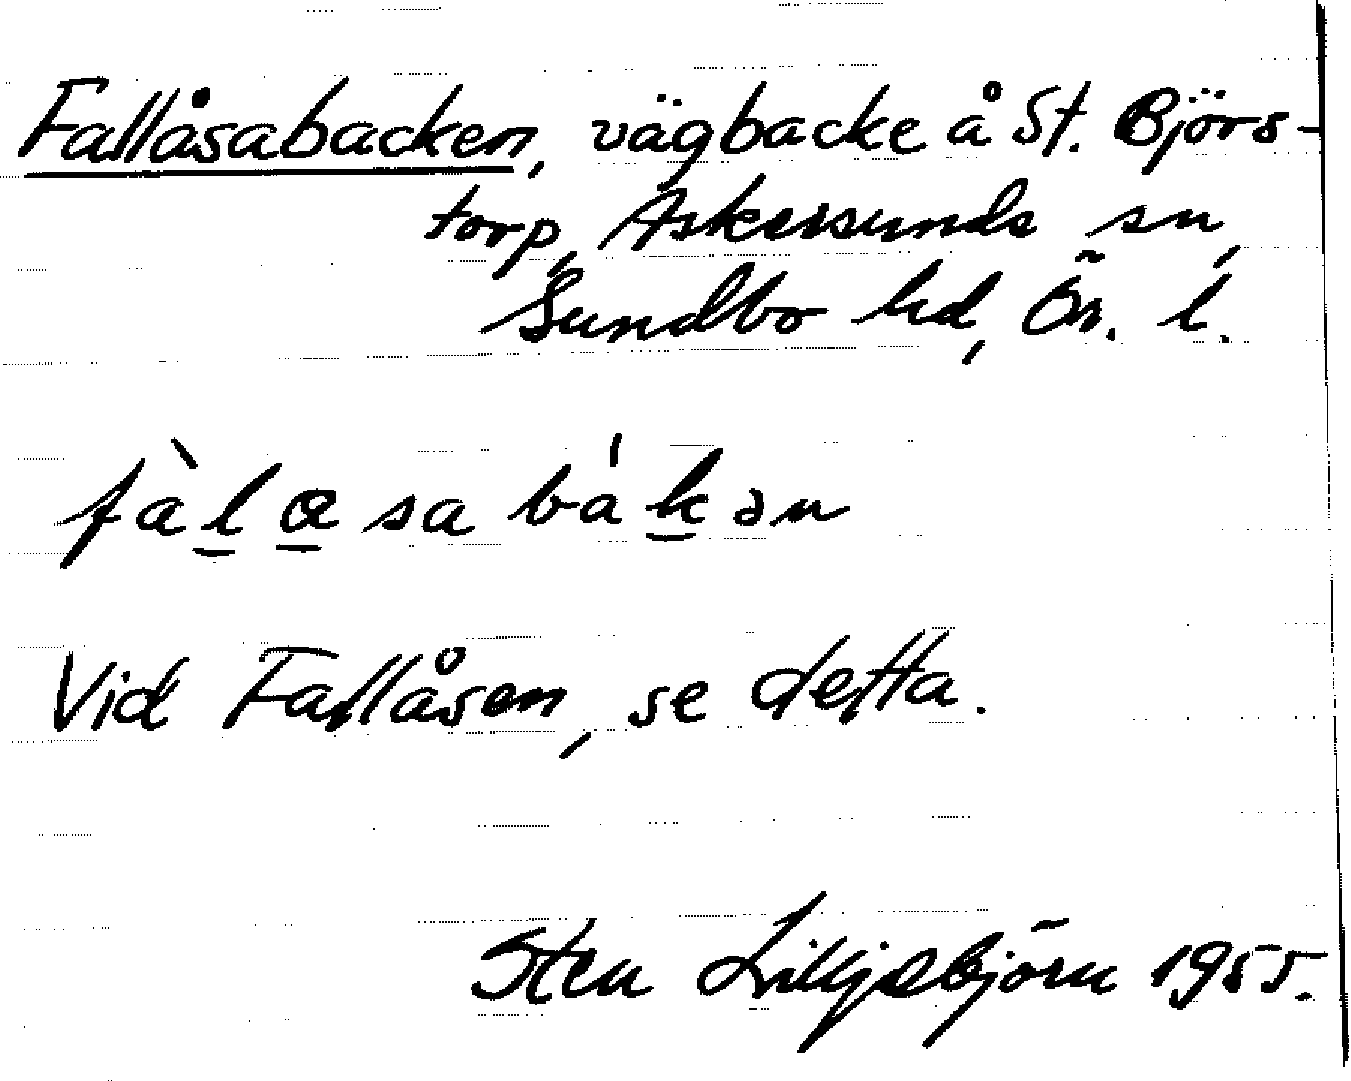 Fallåsabacken, vägbacke å St. Björs-
torp, Askersunds sn,
Sundbo hd, Ör. l.
fàl̲o̲sa bák̲ən
Vid Fallåsen, se detta.
Sten Lilljebjörn 1955.